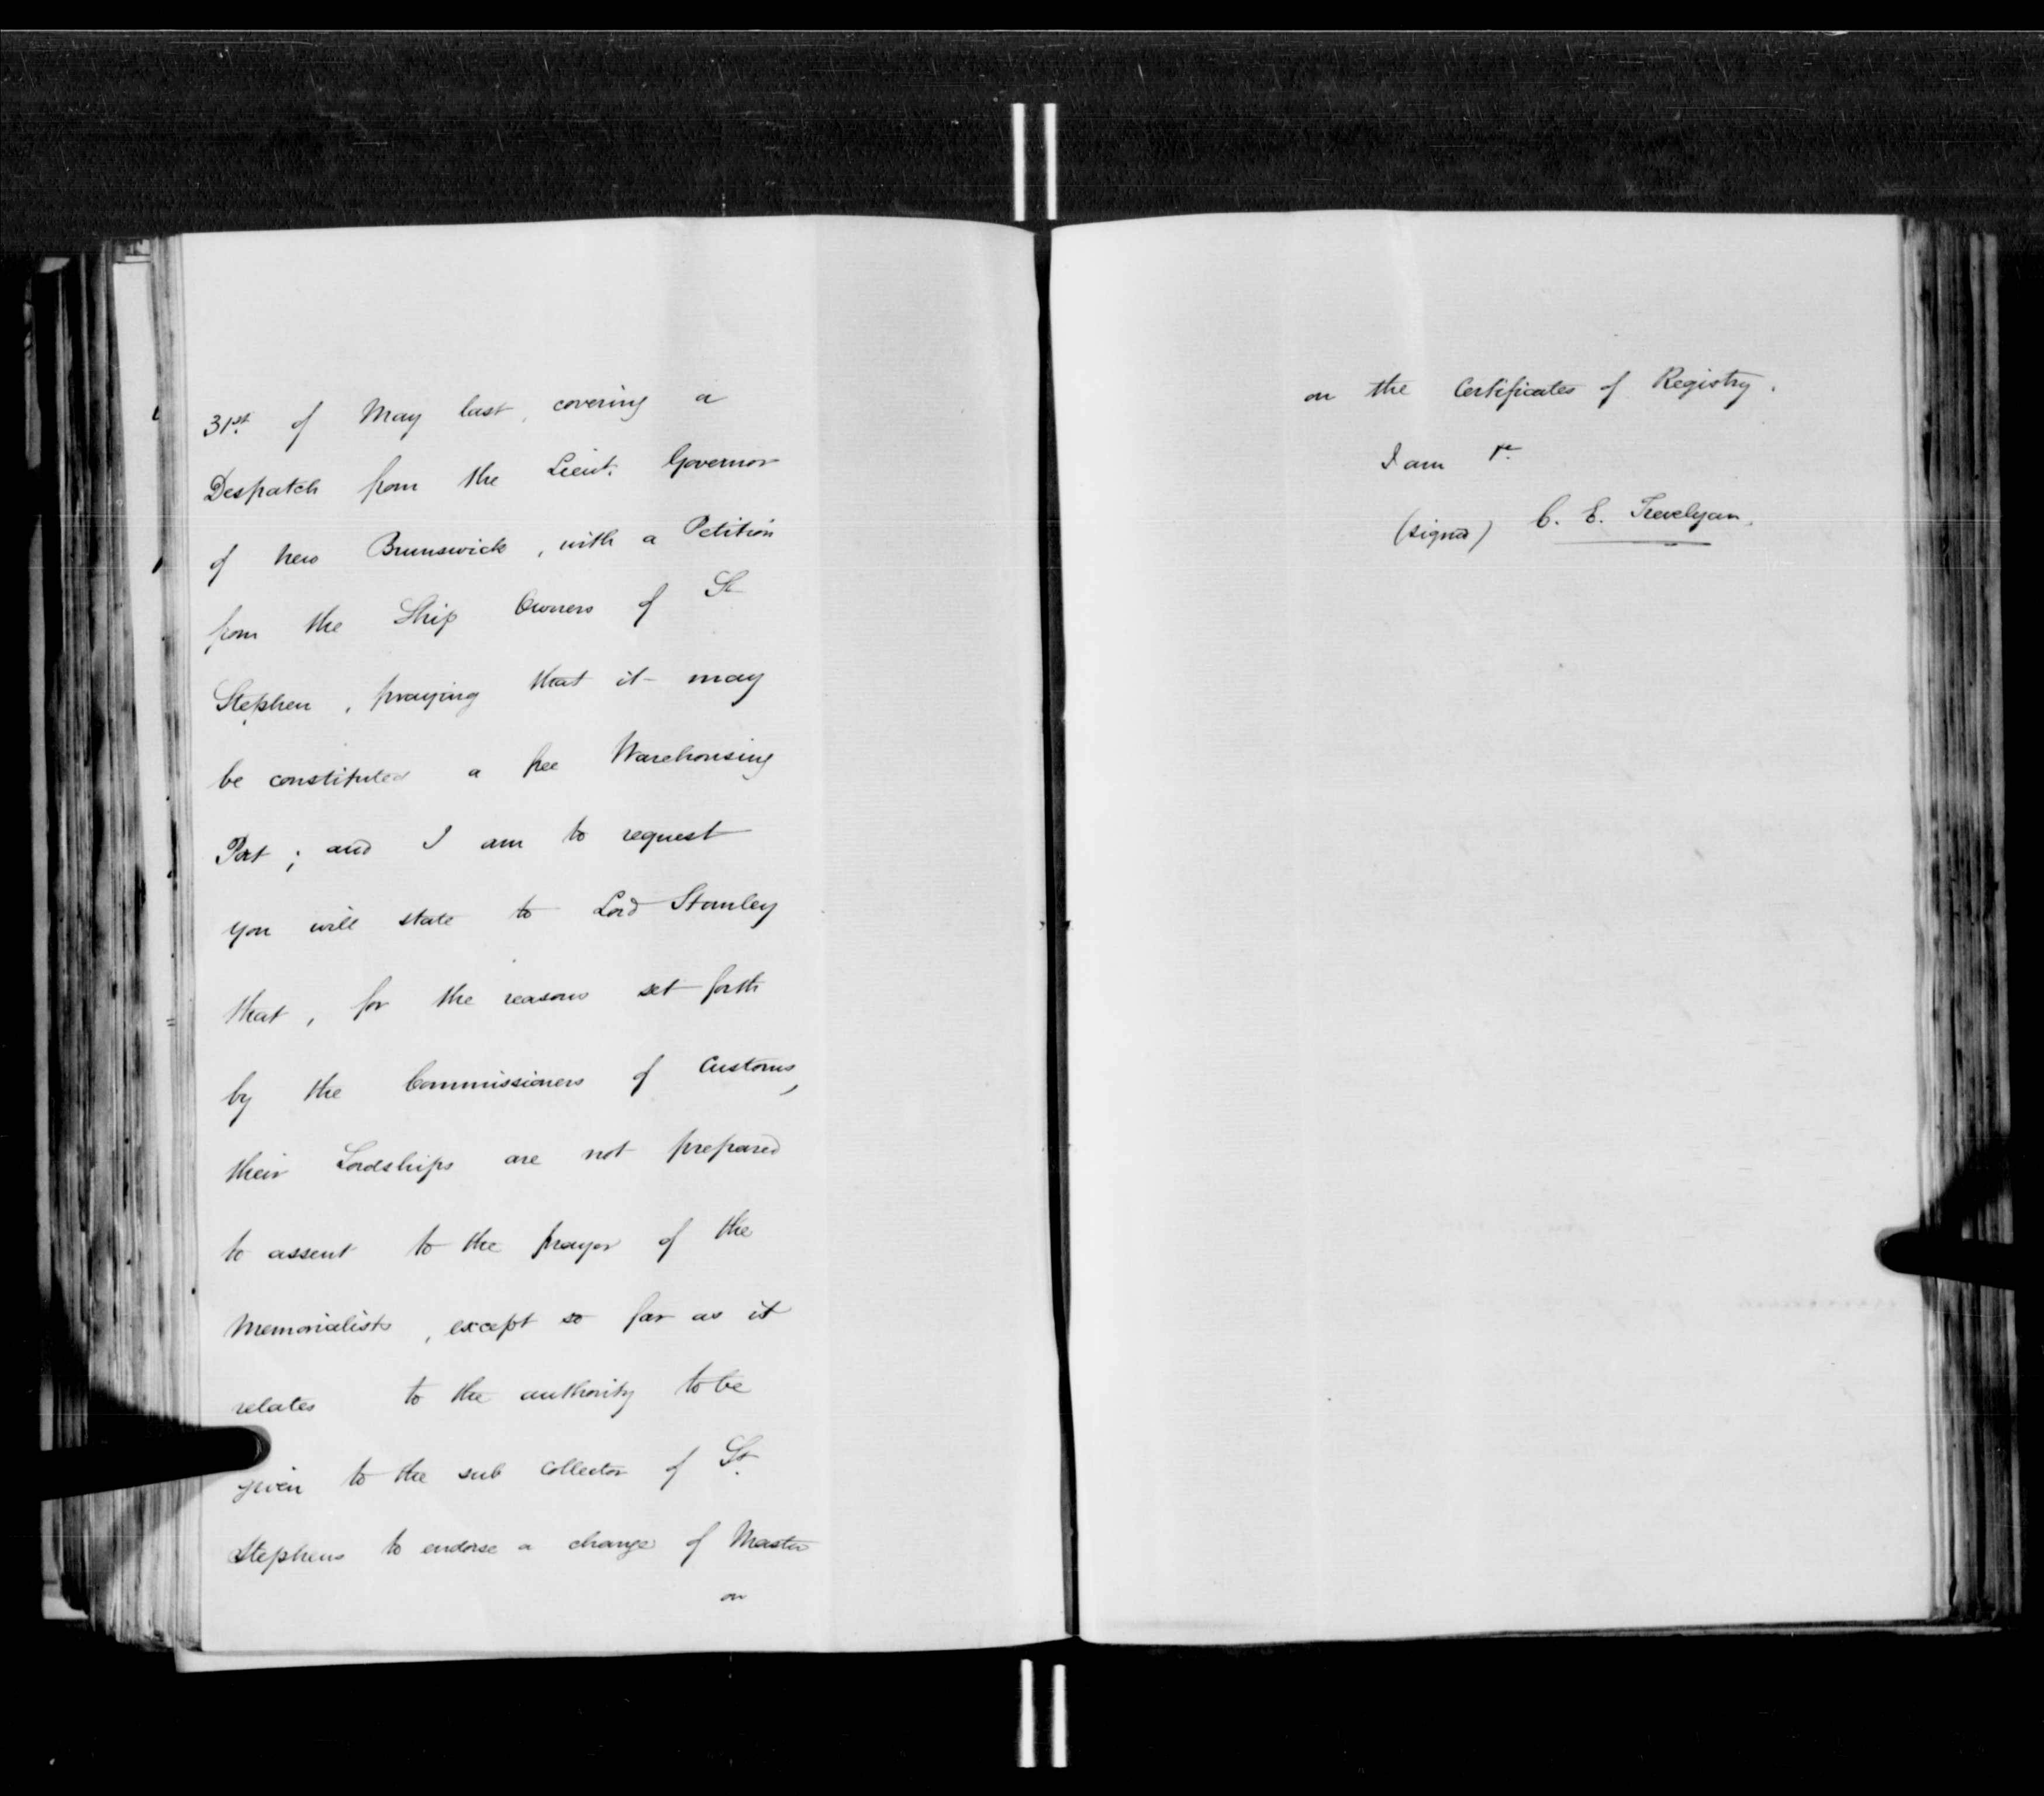 31st. of May last, covering a
Despatch from the Lieut. Governor
of New Brunswick, with a Petition
from the Ship Owners of St
Stephen, praying that it may
be constituted a free Warehousing
Port; and I am to request
you will state to Lord Stanley
that, for the reasons set forth
by the Commissioners of Customs,
their Lordships are not prepared
to assent to the prayer of the
Memorialists, except so far as it
relates to the authority to be
given to the sub Collector of St.
Stephens to endorse a change of Master
on
on the Certificates of Registry.
I am &c.
(signed) C. E. Trevelyan.